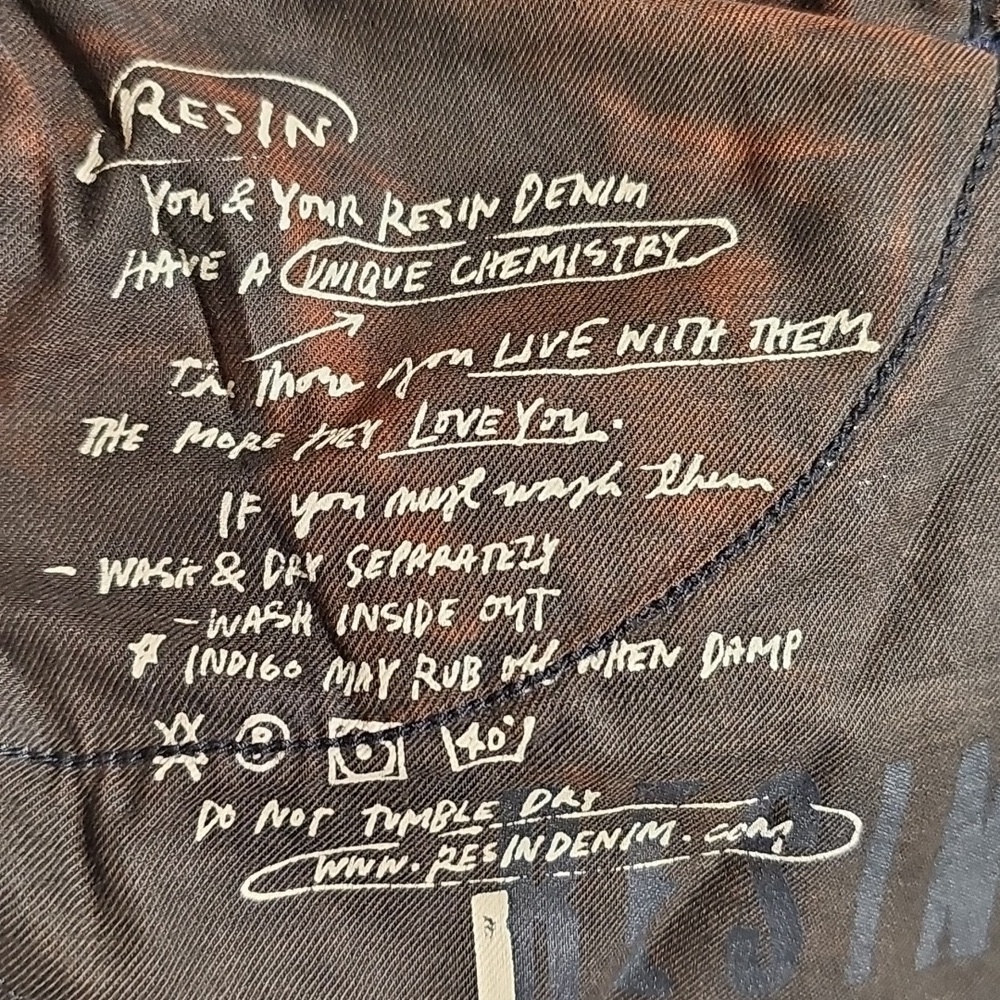 RESIN
You & YOUR RESIN DENIM
HAVE A UNIQUE CHEMISTRY
The more you LIVE WITH THEM
THE MORE THEY LOVE YOU.
IF you must wash them
- WASH & DRY SEPARATELY
- WASH INSIDE OUT
* INDIGO MAY RUB off WHEN DAMP
P 40°
DO NOT TUMBLE DRY
WWW.RESINDENIM.com
RESIN